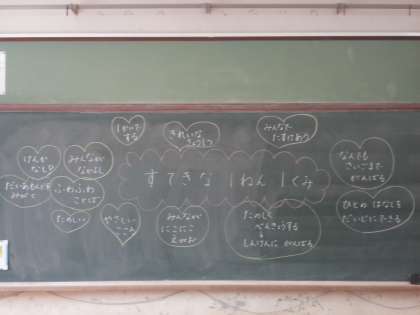 しかいで
する
きれいな
きょうしつ
みんなで
たすけあう
けんか
なし
みんなが
なかよし
なんでも
さいごまで
がんばる
すてきな 1ねん 1くみ
だいあもんどを
みがく
ふわふわ
ことば
たのしい
やさしい
こころ
みんなが
にこにこ
えがお
たのしく
べんきょうする
しんけんに がんばる
ひとの はなしを
だいじにできる